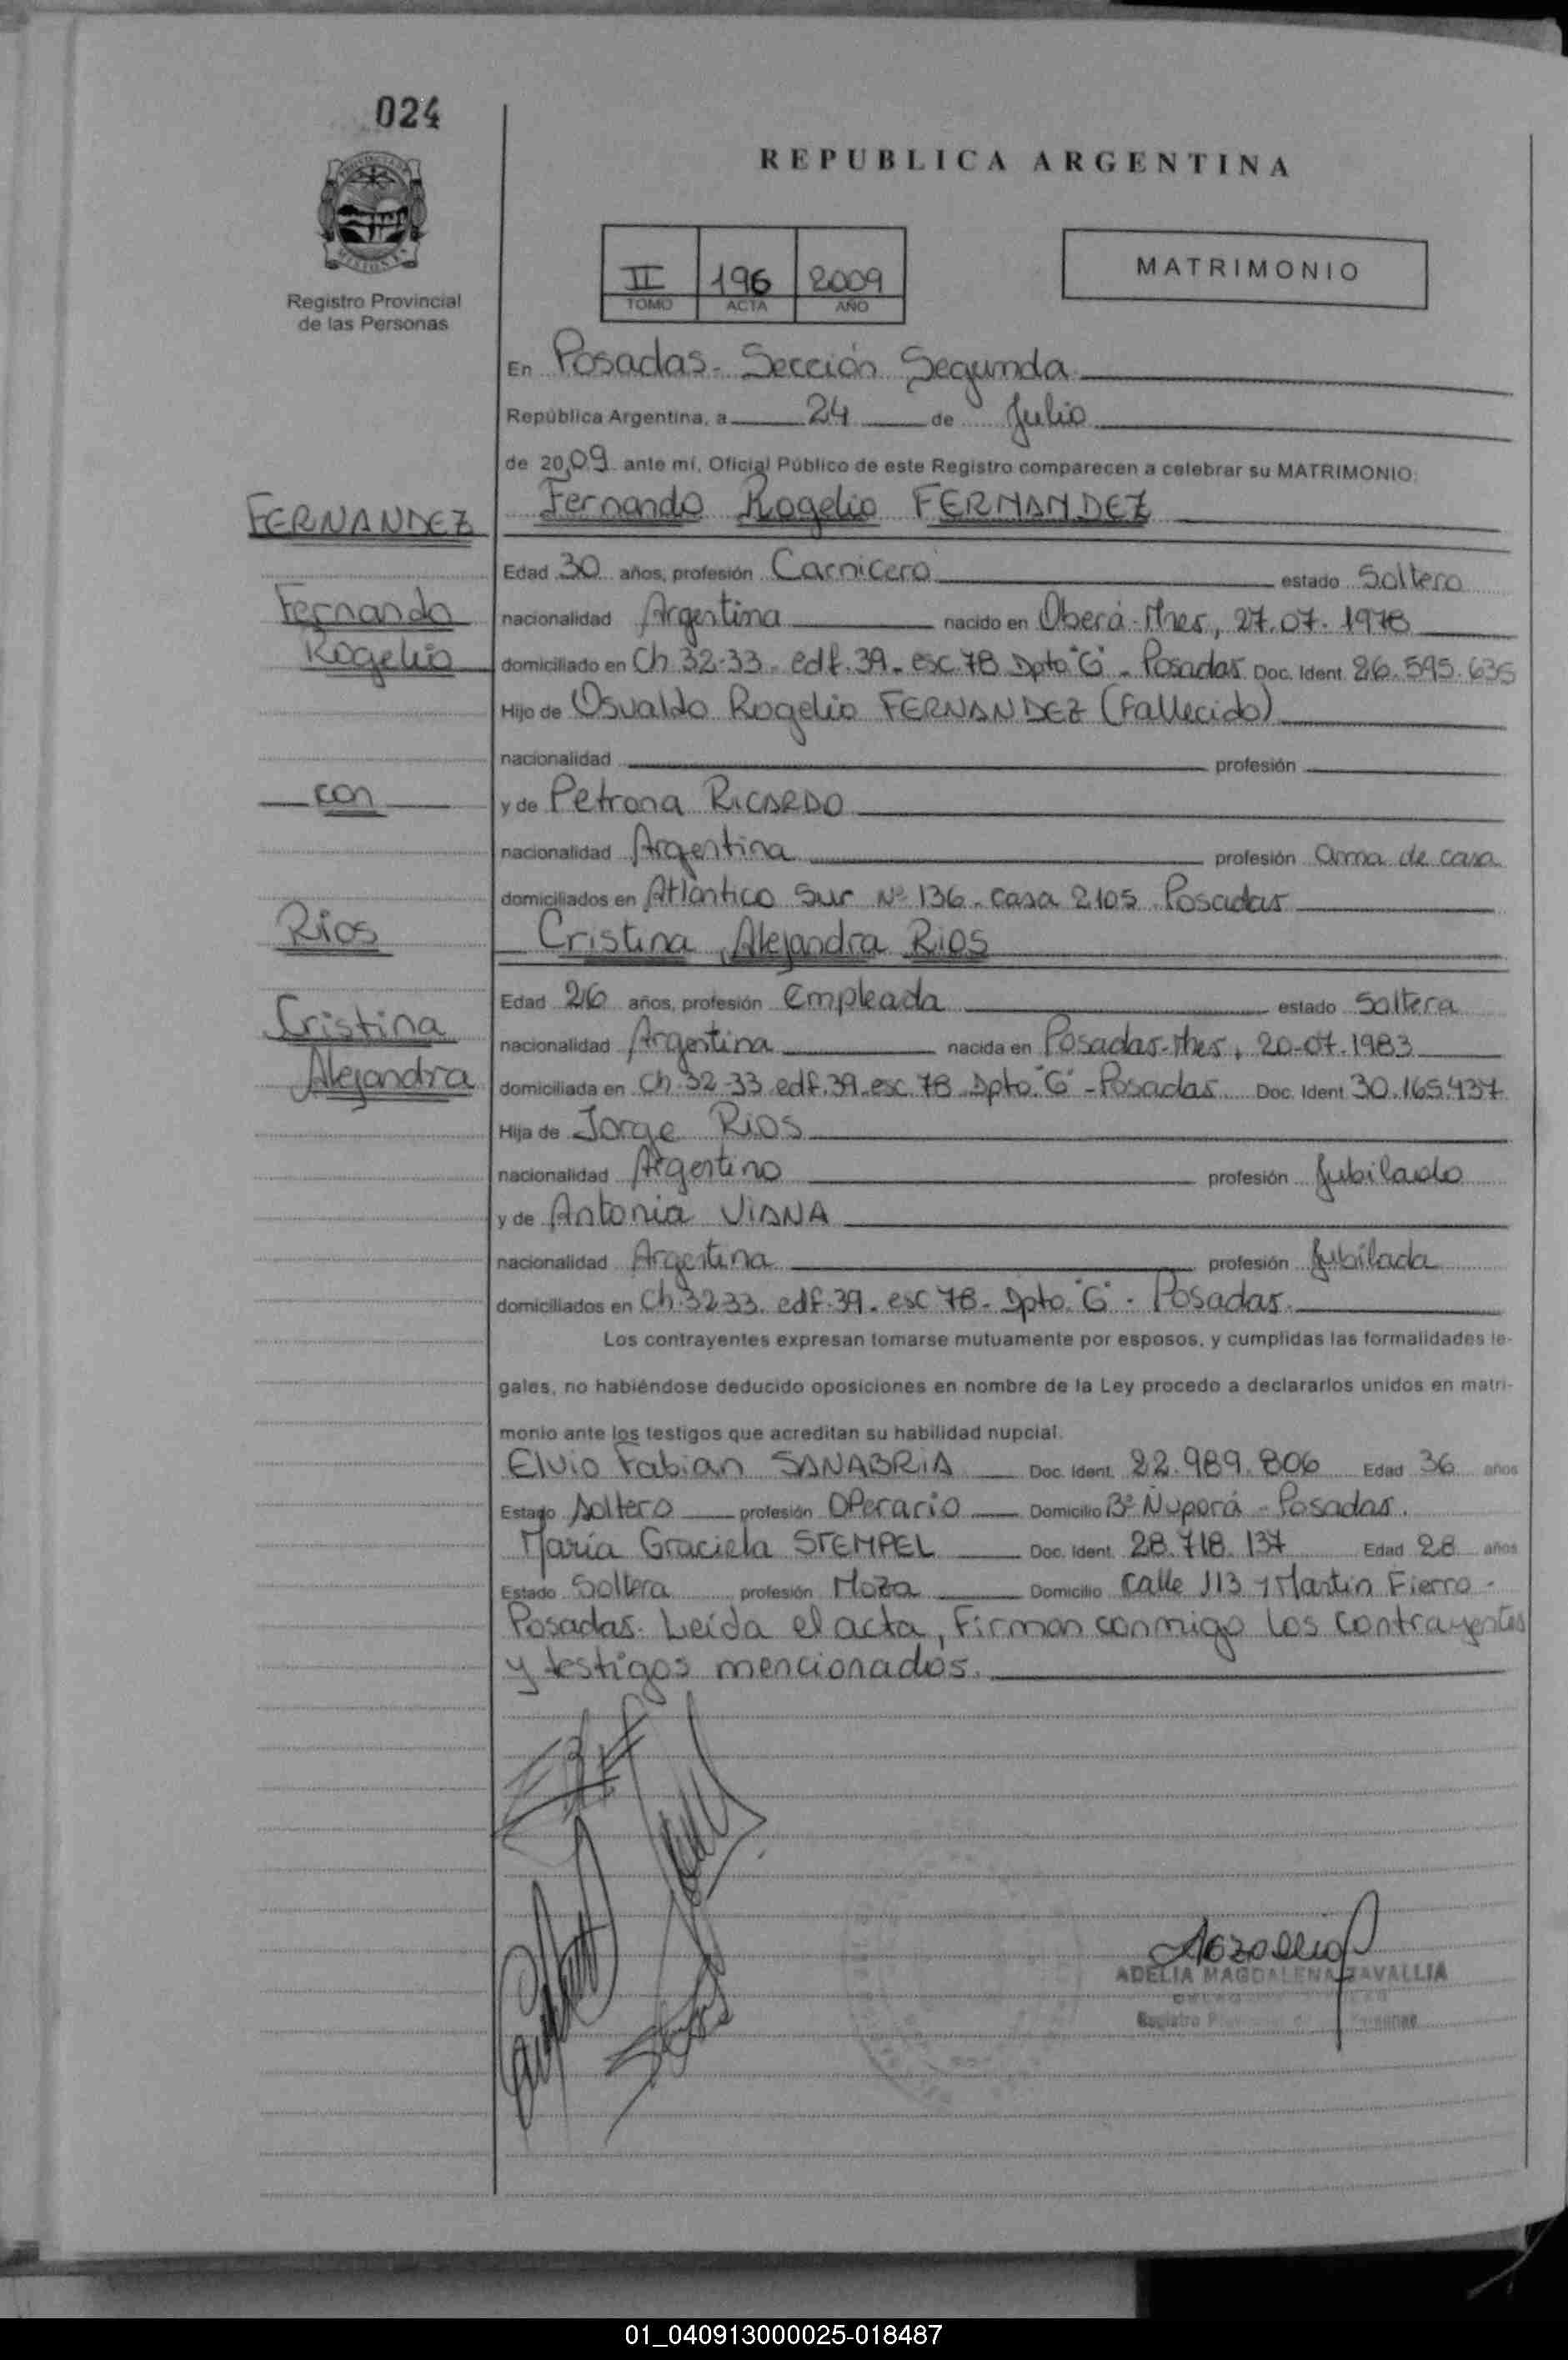 024
REPUBLICA ARGENTINA
MISIONES
Registro Provincial
de las Personas
II 196 2009
TOMO ACTA AÑO
MATRIMONIO
En Posadas - Sección Segunda
República Argentina, a 24 de Julio
de 2009 ante mí, Oficial Público de este Registro comparecen a celebrar su MATRIMONIO:
FERNANDEZ
Fernando Rogelio FERNANDEZ
Edad 30 años, profesión Carnicero estado Soltero
Fernando
nacionalidad Argentina nacido en Oberá-Mnes, 27.07.1978
Rogelio
domiciliado en Ch 32-33- edf. 39- esc. 7B Dpto "G" - Posadas Doc. Ident. 26.595.635
Hijo de Osvaldo Rogelio FERNANDEZ (Fallecido)
nacionalidad profesión
con
y de Petrona RICARDO
nacionalidad Argentina profesión ama de casa
domiciliados en Atlántico Sur Nº 136- casa 2105 Posadas
Rios
Cristina Alejandra RIOS
Edad 26 años, profesión Empleada estado Soltera
Cristina
nacionalidad Argentina nacida en Posadas-Mnes, 20-07.1983
Alejandra
domiciliada en Ch. 32-33 edf. 39-esc. 7B Dpto. "G" - Posadas Doc. Ident. 30.165.437
Hija de Jorge RIOS
nacionalidad Argentino profesión Jubilado
y de Antonia VIANA
nacionalidad Argentina profesión Jubilada
domiciliados en Ch. 3233. edf. 39- esc 7B- Dpto. "G" - Posadas.
Los contrayentes expresan tomarse mutuamente por esposos, y cumplidas las formalidades le-
gales, no habiéndose deducido oposiciones en nombre de la Ley procedo a declararlos unidos en matri-
monio ante los testigos que acreditan su habilidad nupcial.
Elvio Fabian SANABRIA Doc. Ident. 22.989.806 Edad 36 años
Estado Soltero profesión Operario Domicilio Bº Ñuporá - Posadas.
María Graciela STEMPEL Doc. Ident. 28.718.137 Edad 28 años
Estado Soltera profesión Moza Domicilio Calle 113 y Martín Fierro -
Posadas. Leída el acta, Firman conmigo los contrayentes
y testigos mencionados.
ADELIA MAGDALENA ZAVALLIA
Registro
01_040913000025-018487